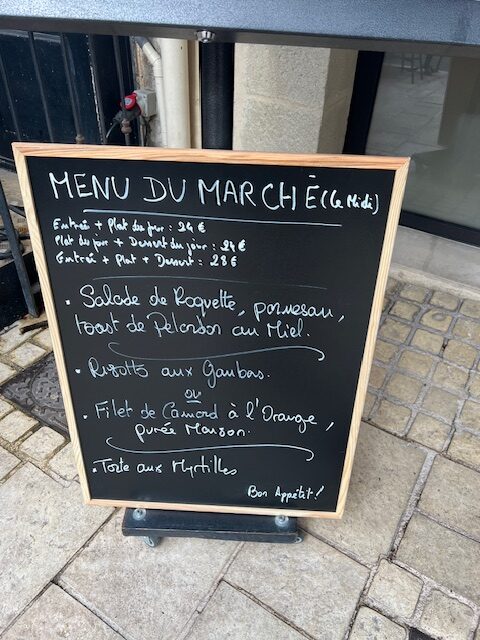 MENU DU MARCHÉ (Le Midi)
Entrée + Plat du jour : 24 €
Plat du jour + Dessert du jour : 24 €
Entrée + Plat + Dessert : 28 €
• Salade de Roquette, parmesan,
toast de Pelardon au Miel.
• Risotto aux Gambas.
ou
• Filet de Canard à l'Orange,
purée Maison.
• Tarte aux Myrtilles
Bon Appétit !